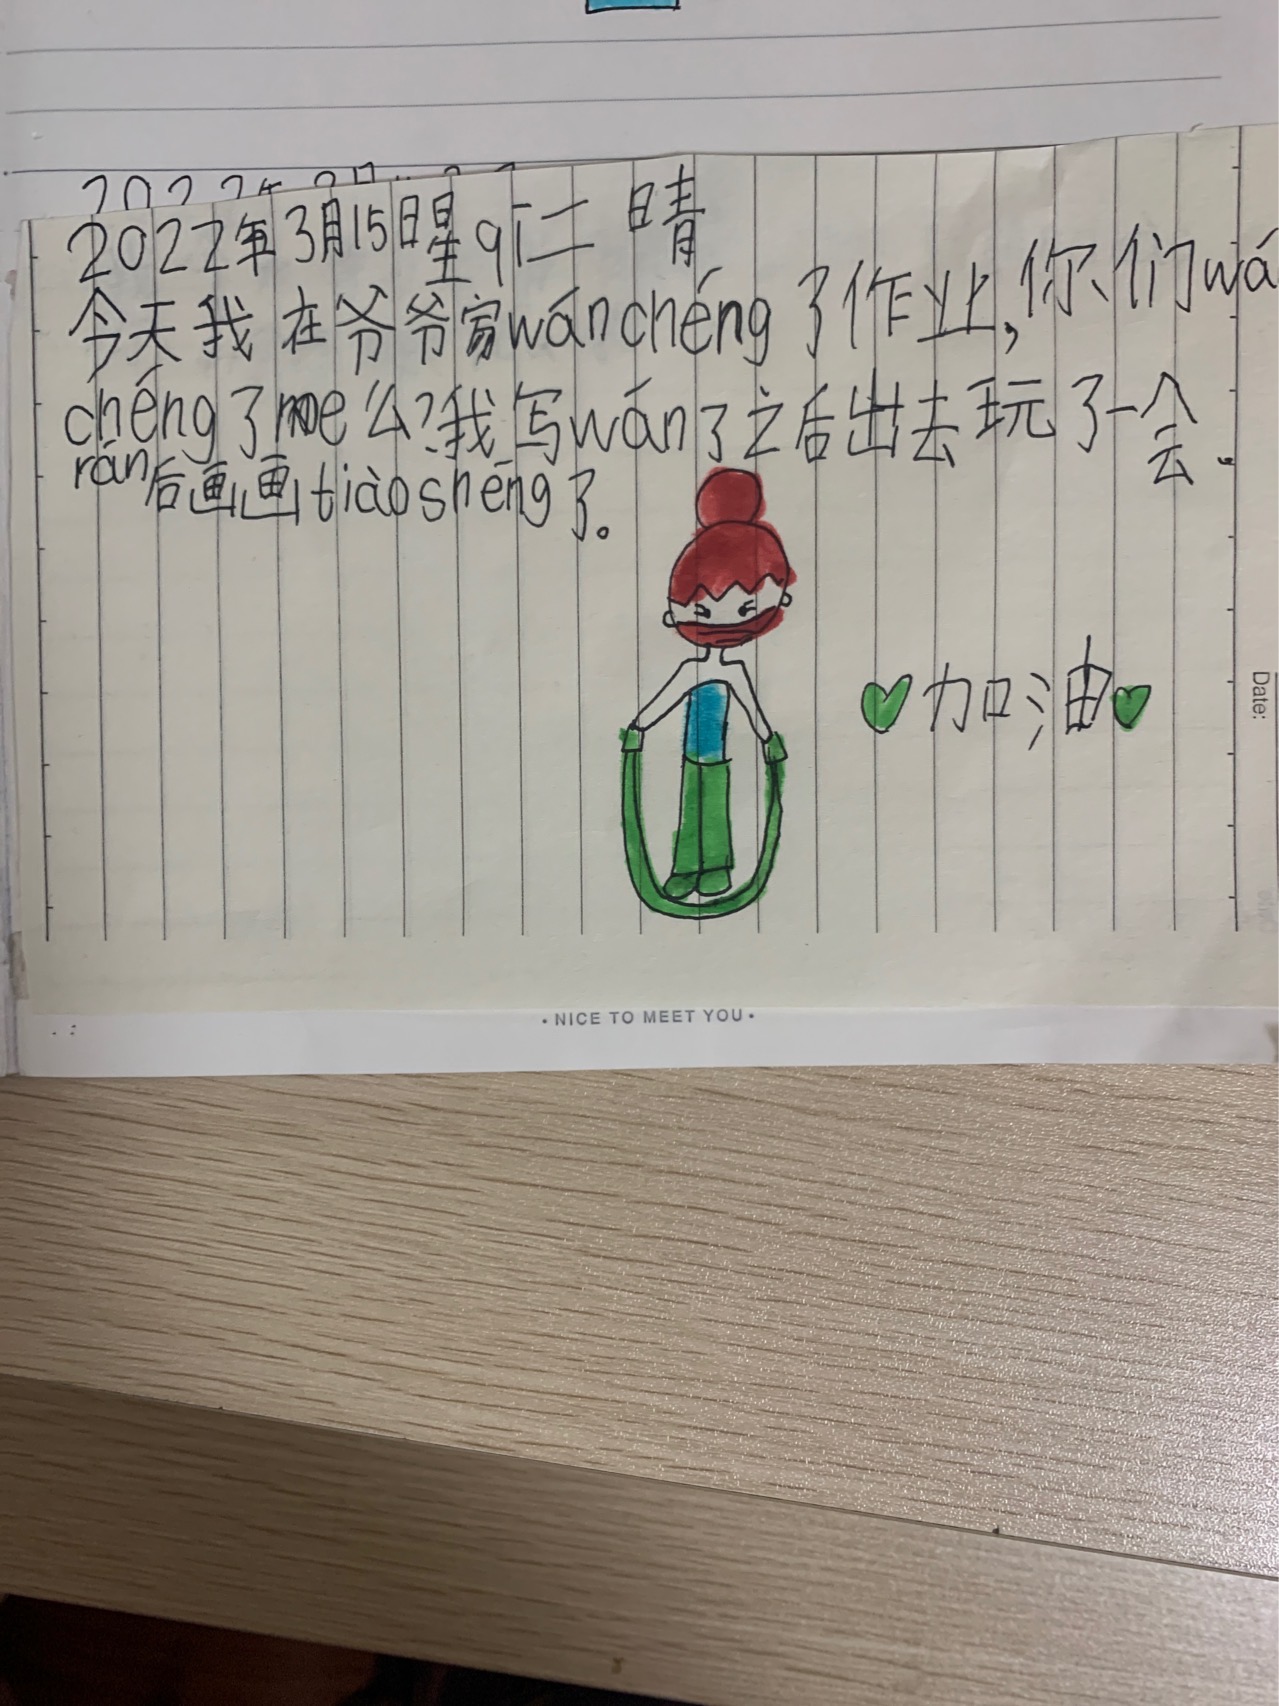 2022年3月15日星qī二 晴
今天我在爷爷家wánchéng了作业,你们wá
chéng了me么?我写wán了之后出去玩了一会.
rán后画画tiàoshéng了。
加油
Date:
• NICE TO MEET YOU •